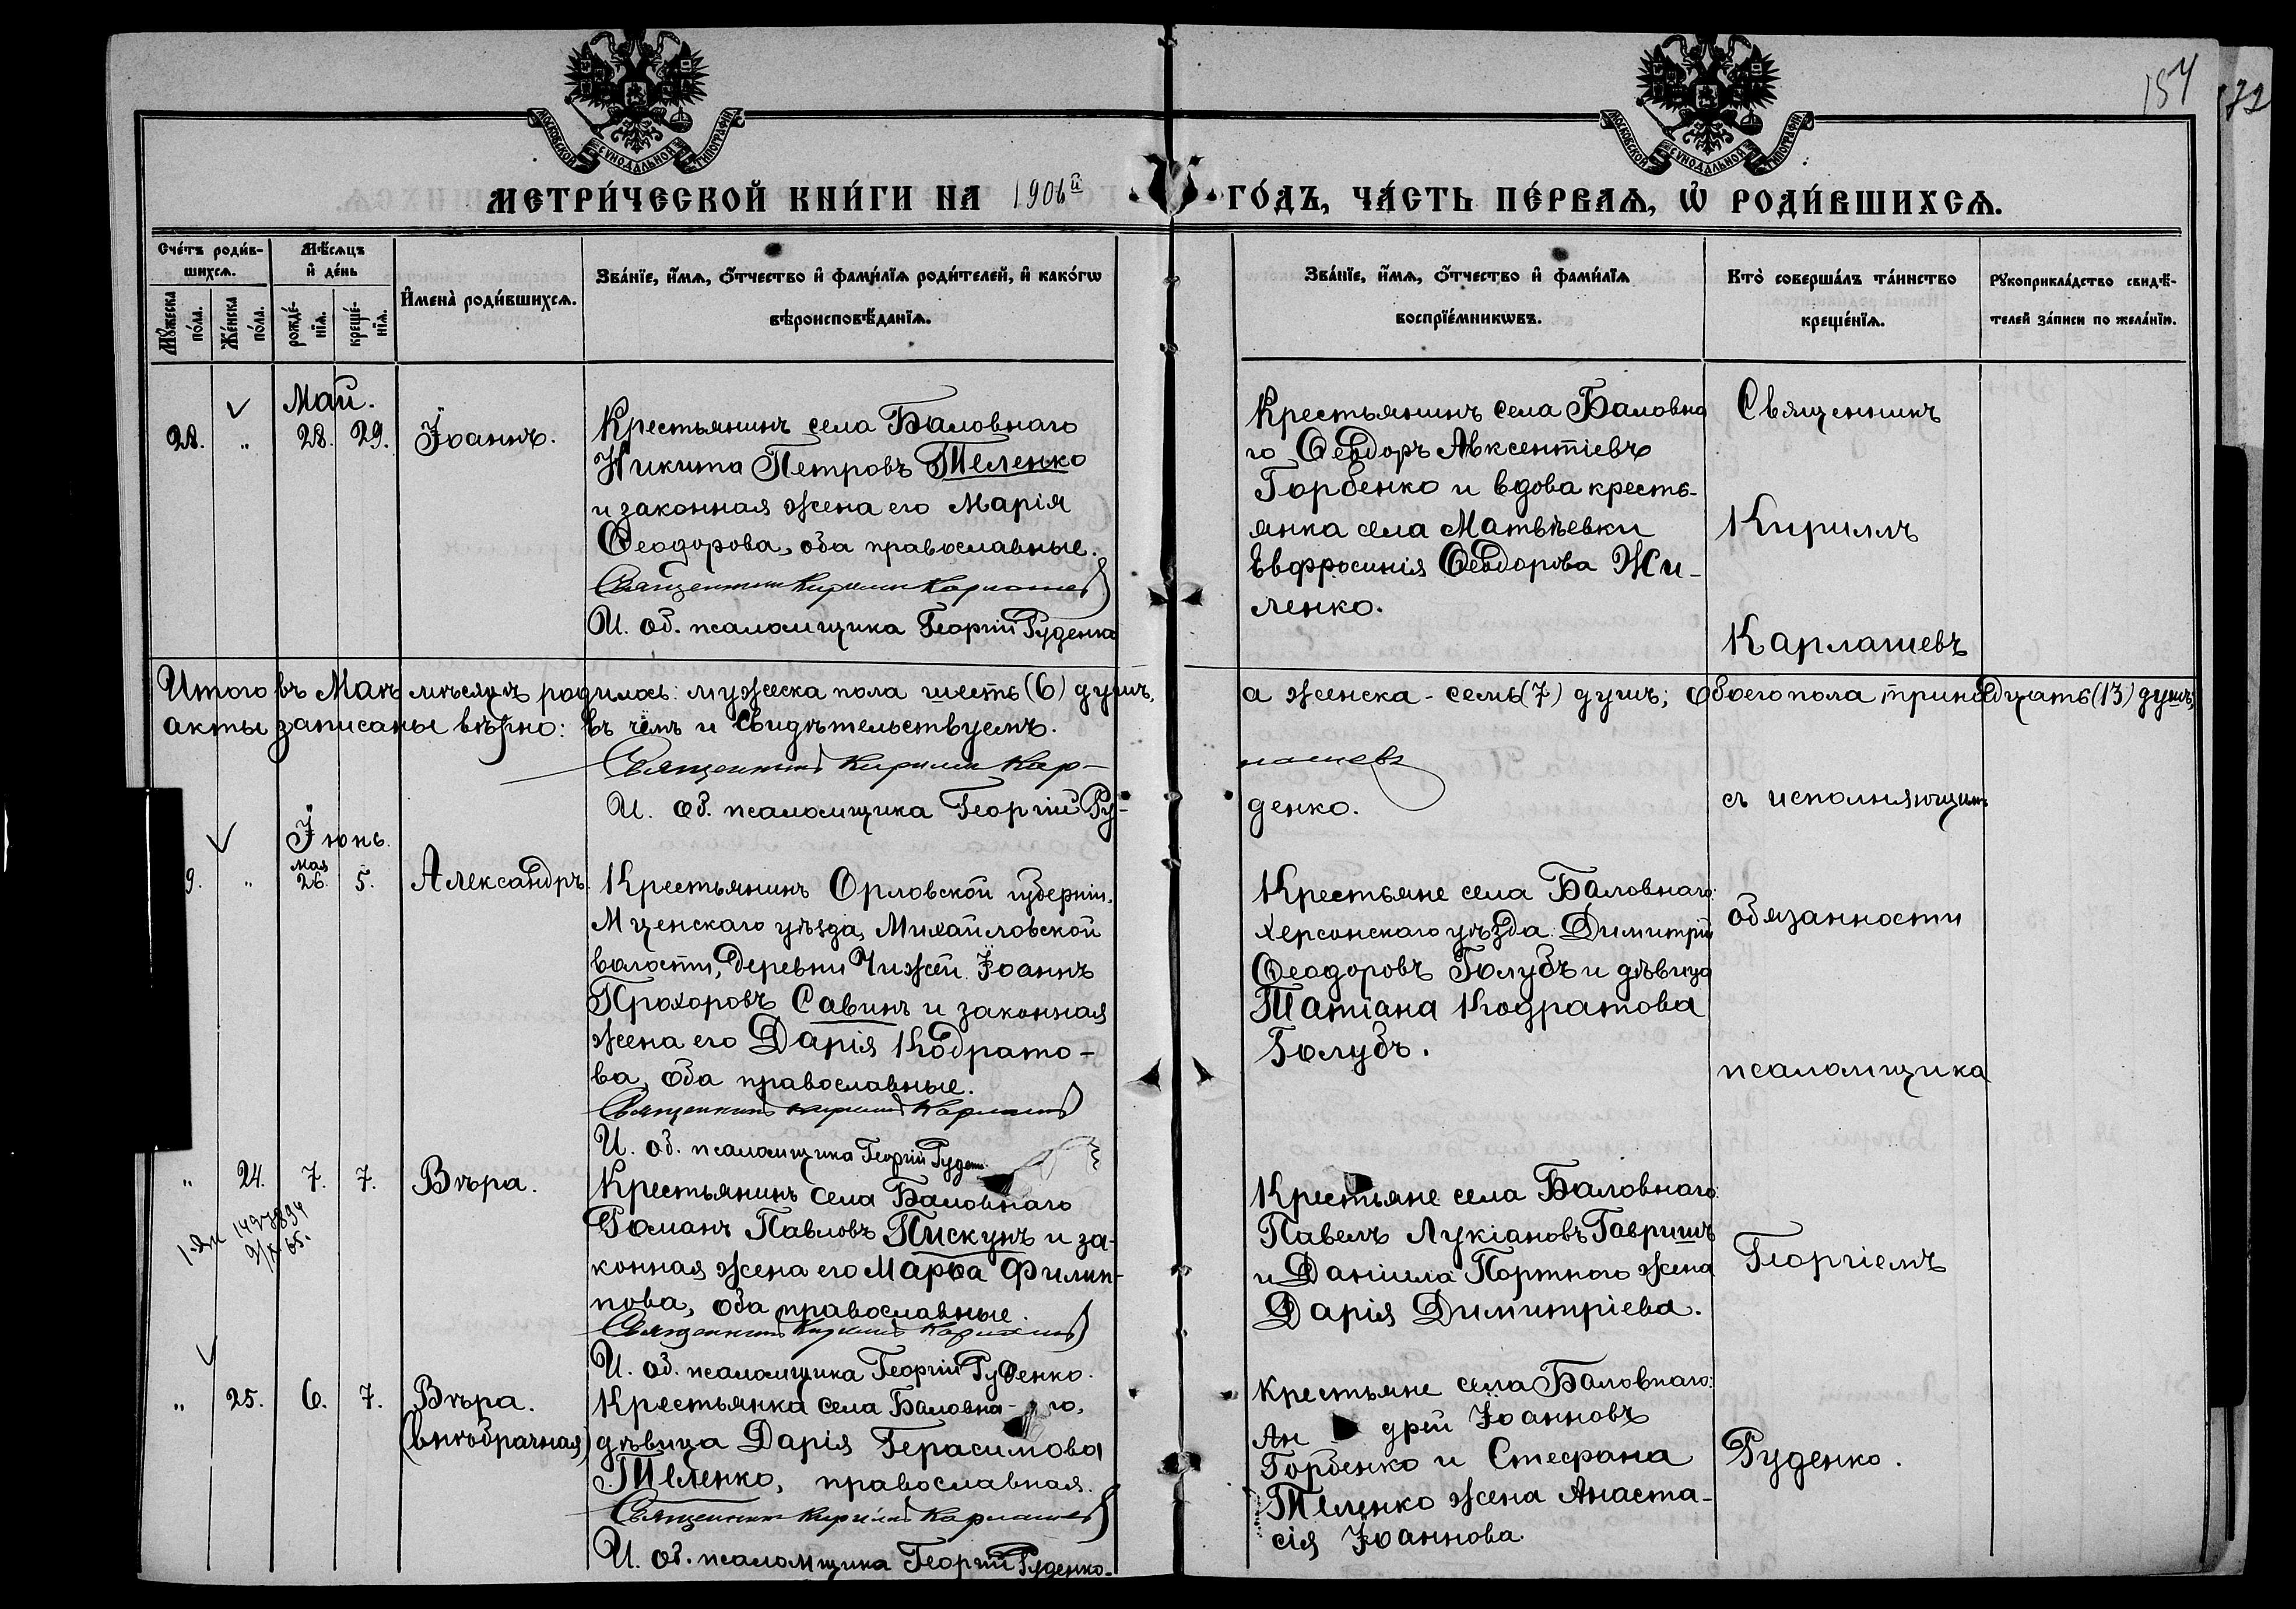 154
72
МОСКОВСКОЙ СѴНОДАЛЬНОЙ ТИПОГРАФІИ
МОСКОВСКОЙ СѴНОДАЛЬНОЙ ТИПОГРАФІИ
МЕТРИ́ЧЕСКОЙ КНИ́ГИ НА 1906й ГО́ДЪ, ЧА́СТЬ ПЕ́РВАѦ, Ѡ҆ РОДИ́ВШИХСѦ.
Сче́тъ роди́в-
шихсѧ.
Мѣ́сѧцъ
и҆ де́нь
Мꙋ́жеска
по́ла.
Же́нска
по́ла.
рожде́-
нїѧ.
креще́-
нїѧ.
И҆мена̀ роди́вшихсѧ.
Зва́нїе, и҆́мѧ, ѻ҆́тчество и҆ фами́лїѧ роди́телей, и҆ како́гѡ
вѣроисповѣ́данїѧ.
Зва́нїе, и҆́мѧ, ѻ҆́тчество и҆ фами́лїѧ
воспрїе́мникѡвъ.
Кто̀ соверша́лъ та́инство
креще́нїѧ.
Рꙋкоприкла́дство свидѣ́-
телей за́писи по жела́нїю.
Май.
28. " 28. 29. Іоаннъ.
Крестьянинъ села Баловнаго
Никита Петровъ Теленко
и законная жена его Марія
Ѳеодорова, оба православные.
Священникъ Кириллъ Карлашевъ
И. об. псаломщика Георгій Руденко
Крестьянинъ села Баловна
го Ѳеодоръ Авксентіевъ
Горбенко и вдова кресть-
янка села Матвѣевки
Евфросинія Ѳеодорова Жи-
ленко.
Священникъ
Кириллъ
Карлашевъ
Итого въ Маѣ мѣсяцѣ родилось: мужеска пола шесть (6) душъ, а женска - семь (7) душъ; обоего пола тринадцать (13) душъ;
акты записаны вѣрно: въ чемъ и свидѣтельствуемъ.
Священникъ Кириллъ Кар-
лашевъ
И. об. псаломщика Георгій Ру-
денко.
съ исполняющимъ
Іюнь.
9. " мая 26. 5. Александръ.
Крестьянинъ Орловской губерніи,
Мценскаго уѣзда, Михайловской
волости, деревни Чижей Іоаннъ
Прохоровъ Савинъ и законная
жена его Дарія Кодрато-
ва, оба православные.
Священникъ Кириллъ Карлашевъ
И. об. псаломщика Георгій Руденко
Крестьяне села Баловнаго
Херсонскаго уѣзда: Димитрій
Ѳеодоровъ Голубъ и дѣвица
Татіана Кодратова
Голубъ.
обязанности
псаломщика
" 24. 7. 7. Вѣра.
Крестьянинъ села Баловнаго
Романъ Павловъ Пискунъ и за-
конная жена его Марѳа Филип-
пова, оба православные.
Священникъ Кириллъ Карлашевъ
И. об. псаломщика Георгій Руденко.
Крестьяне села Баловнаго:
Павелъ Лукіановъ Гавришъ
и Даніила Портного жена
Дарія Димитріева.
Георгіемъ
" 25. 6. 7. Вѣра.
(внѣбрачная)
Крестьянка села Баловна-го,
дѣвица Дарія Герасимова
Теленко, православная.
Священникъ Кириллъ Карлашевъ
И. об. псаломщика Георгій Руденко.
Крестьяне села Баловнаго:
Андрей Іоанновъ
Горбенко и Стефана
Теленко жена Анаста-
сія Іоаннова.
Руденко.